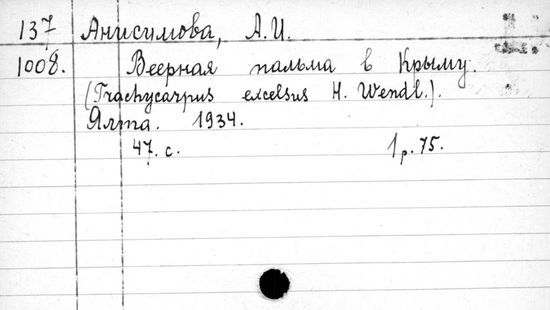 137 Анисимова, А.И.
1008. Веерная пальма в Крыму.
(Trachycarpus excelsus H. Wendl.).
Ялта. 1934.
47. с. 1р.75.